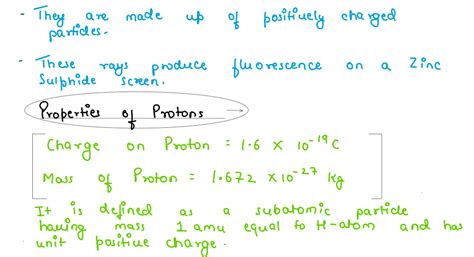 - They are made up of positively charged
particles.
- These rays produce fluorescence on a Zinc
Sulphide screen.
Properties of Protons →
Charge on Proton = 1.6 × 10⁻¹⁹ C
Mass of Proton = 1.672 × 10⁻²⁷ kg
It is defined as a subatomic particle
having mass 1 amu equal to H-atom and has
unit positive charge.